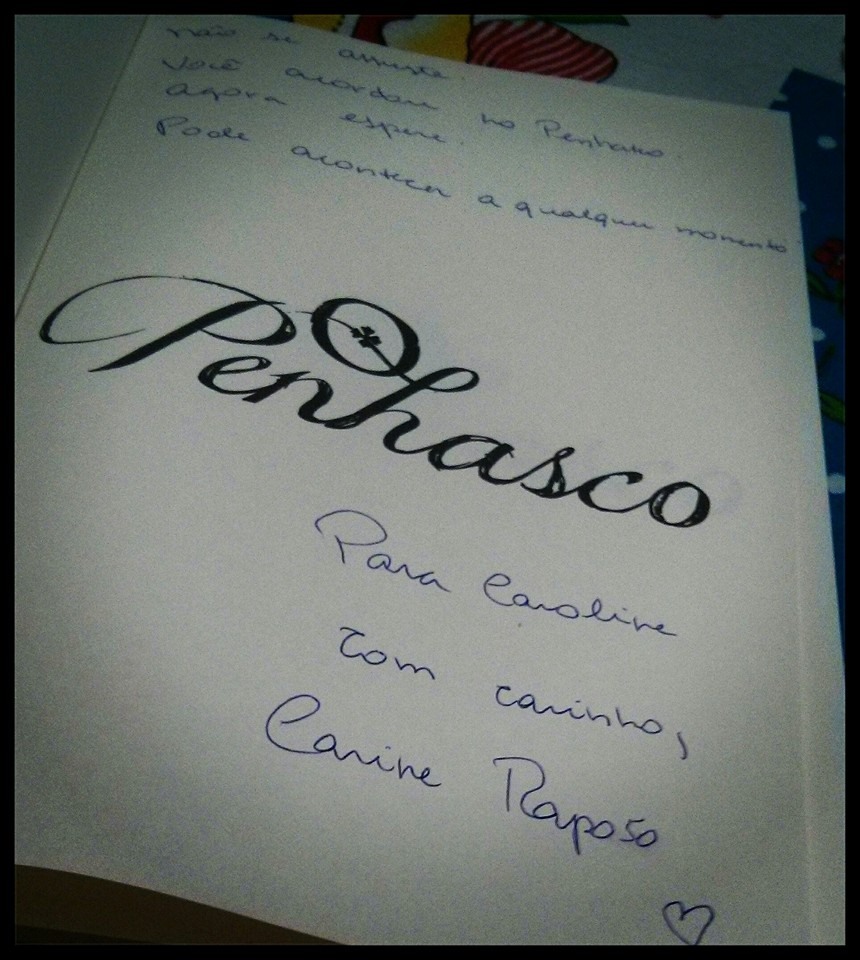 não se assuste.
Você acordou no Penhasco.
Agora espere.
Pode acontecer a qualquer momento.
O
Penhasco
Para Caroline
com carinho,
Carine Raposo